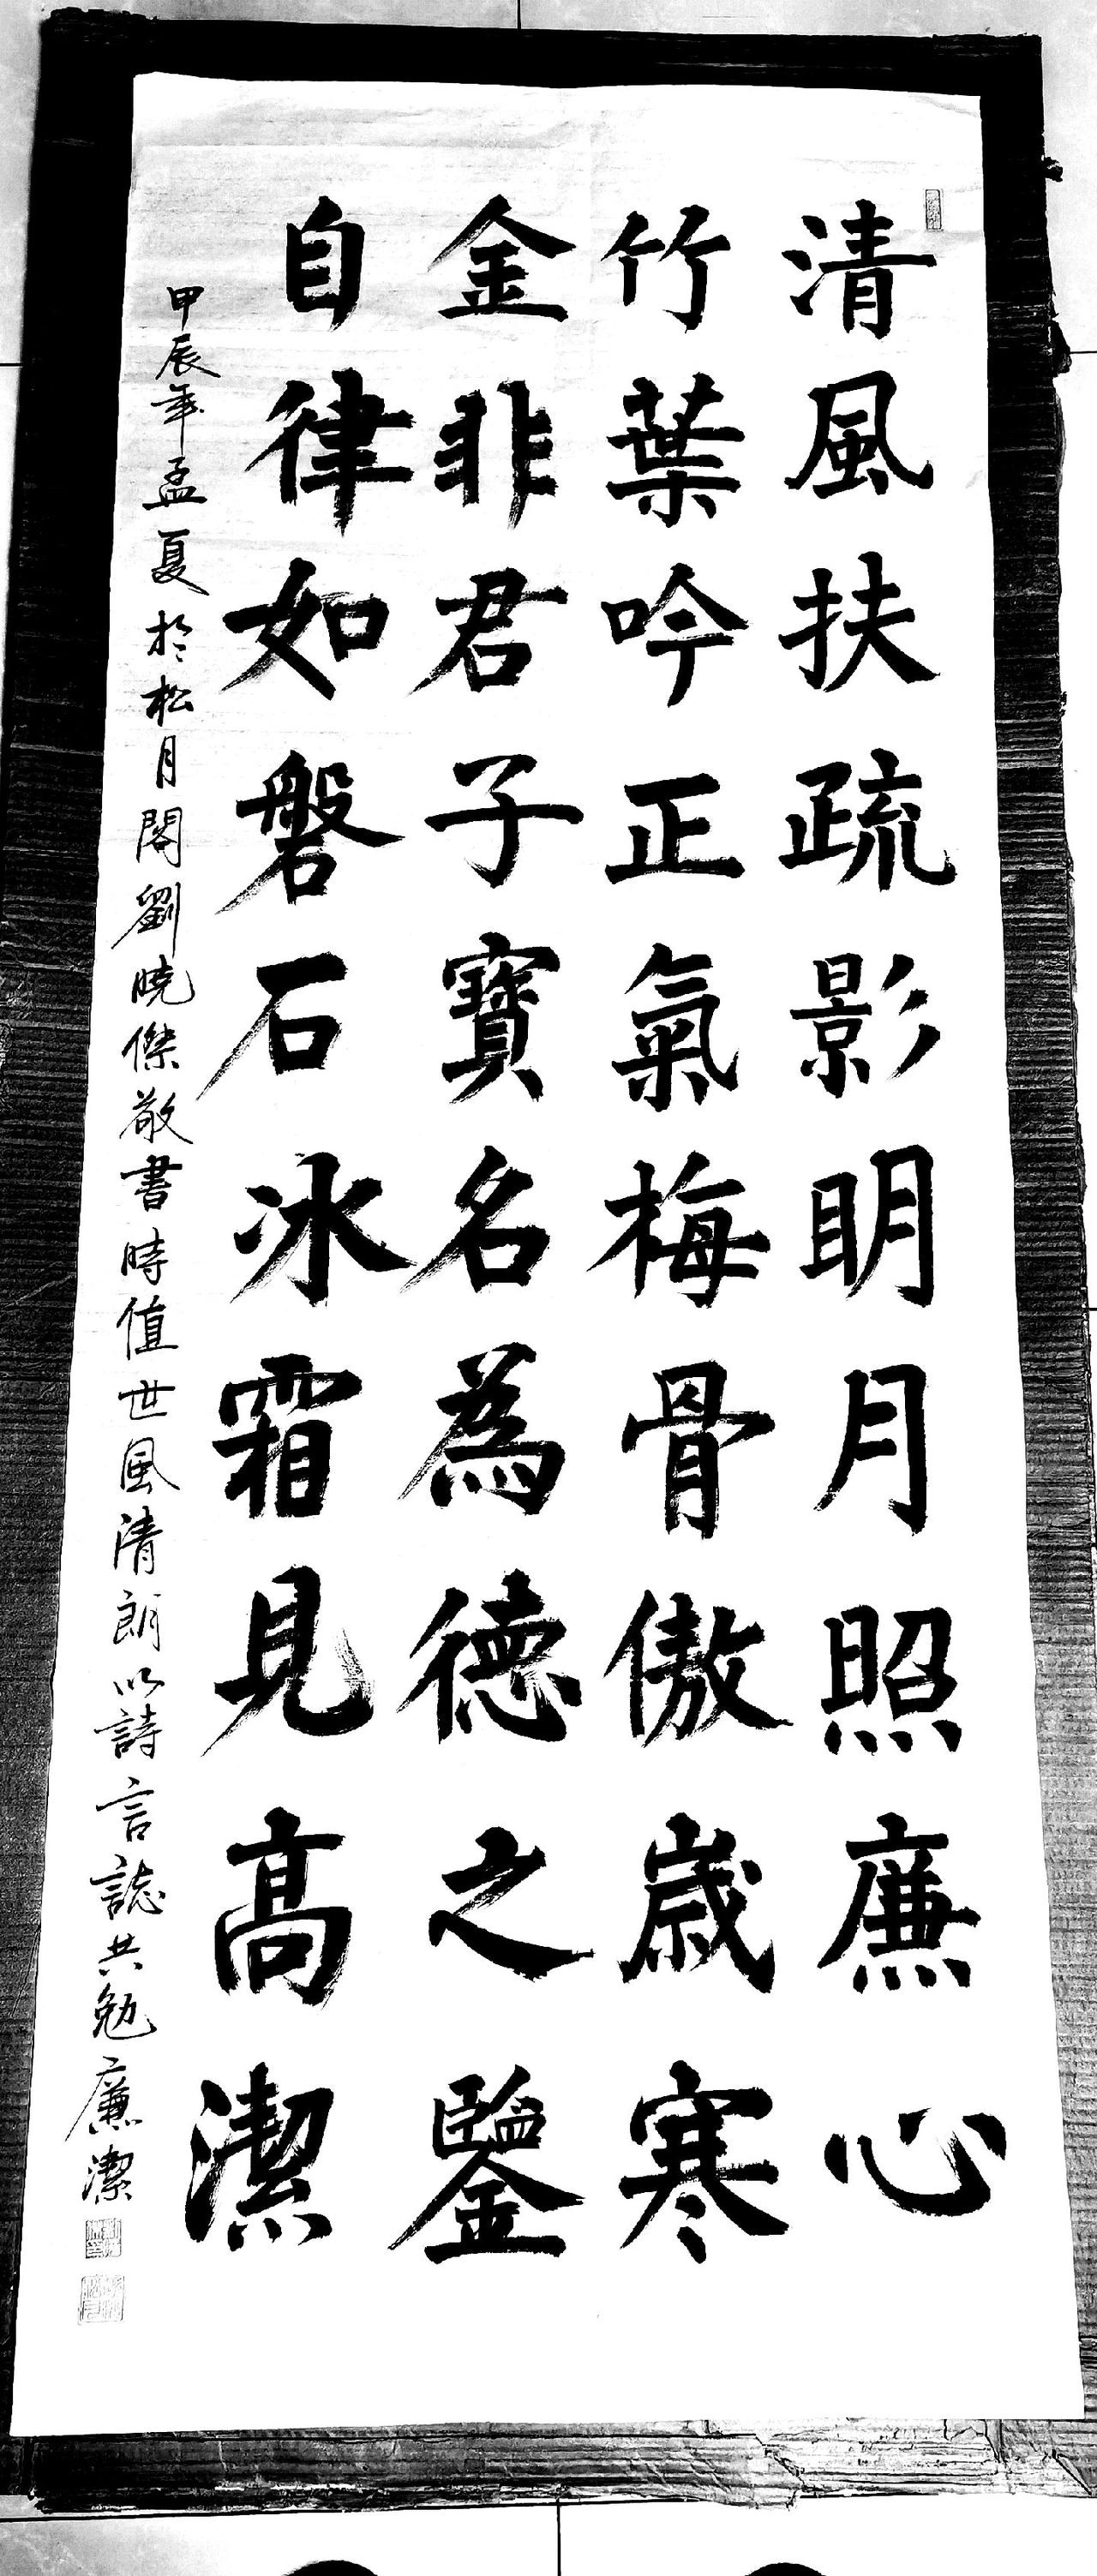 清風扶疏影明月照廉心
竹葉吟正氣梅骨傲歲寒
金非君子寶名為德之鑒
自律如磐石冰霜見高潔
甲辰年孟夏於松月閣劉曉傑敬書時值世風清朗以詩言誌共勉廉潔